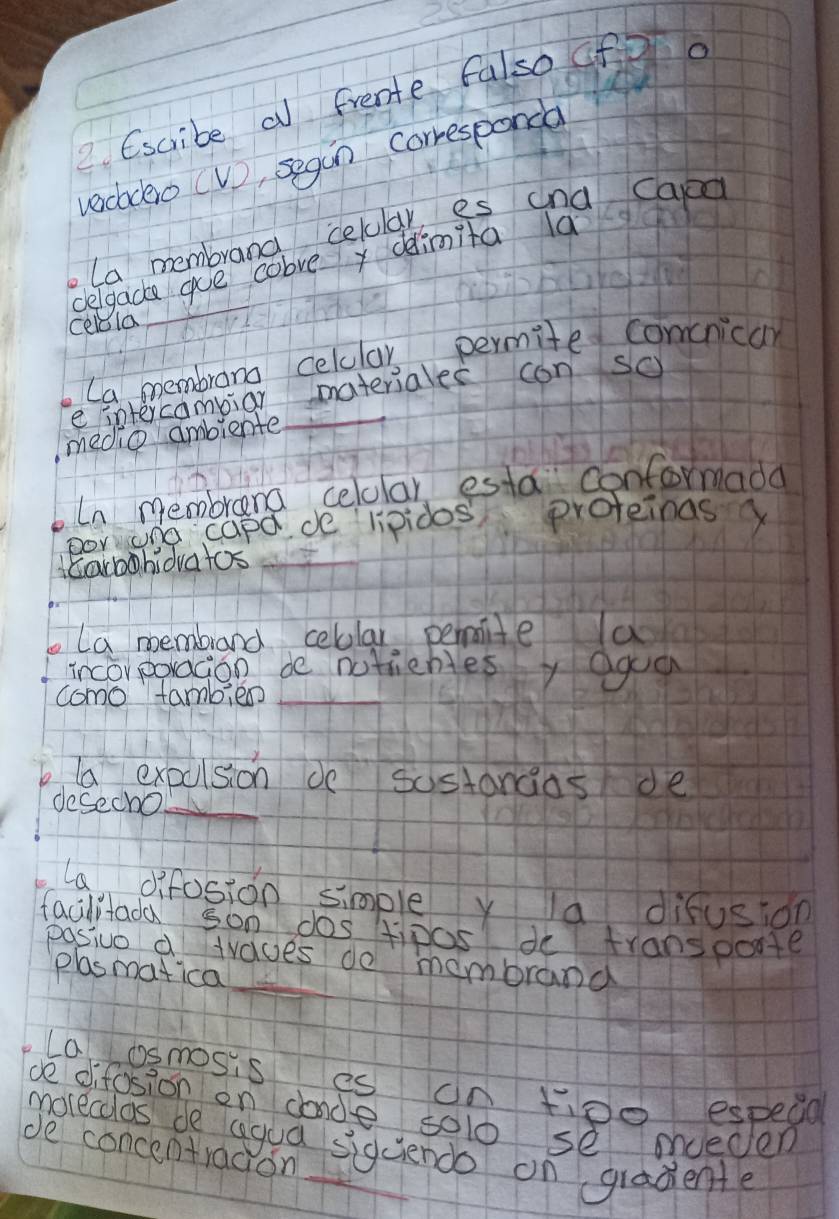 2. Escribe al frente falso (f) o
verdadero (V), según corresponda
• La membrana celular, es una capa
delgada que cubre y delimita la
celula
• La membrana celular permite comunicar
e intercambiar materiales con su
medio ambiente
• La membrana celular está conformada
por una capa de lipidos, proteinas y
carbohidratos
• La membrana celular permite la
incorporación de nutrientes y agua
como tambien
• la expulsión de sustancias de
desecho
• La difusión simple y la difusion
facilitada son dos tipos de transporte
pasivo a traves de membrana
plasmatica
• La osmosis es un tipo especial
de difusión en donde solo se mueven
moleculas de agua siguiendo un gradiente
de concentración